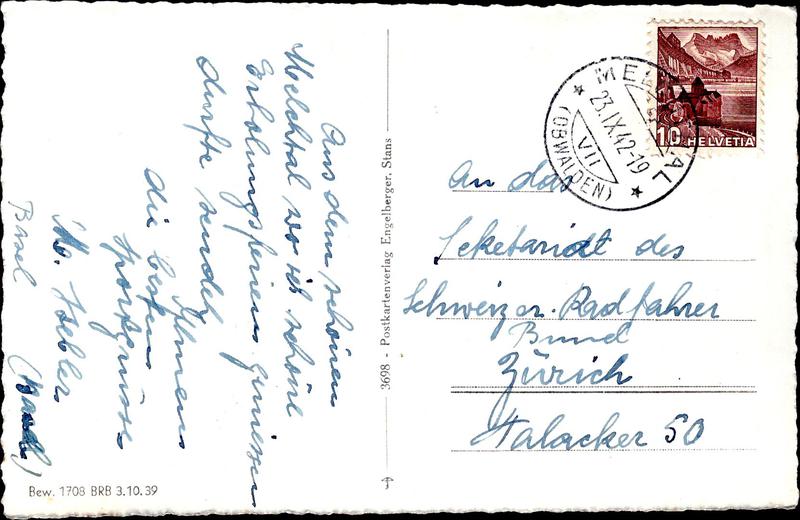 Aus dem schönen
Melchtal wo ich schöne
Erholungsferien geniessen
durfte sendet
Ihnen
die besten
Sportgrüsse
Basel
3698 - Postkartenverlag Engelberger, Stans
Bew. 1708 BRB 3.10.39
MELCHTAL
23.IX.42-19
VII
(OBWALDEN)
10 HELVETIA
An das
Sekretariat des
Schweizer. Radfahrer
Bund
Zürich
Talacker 50